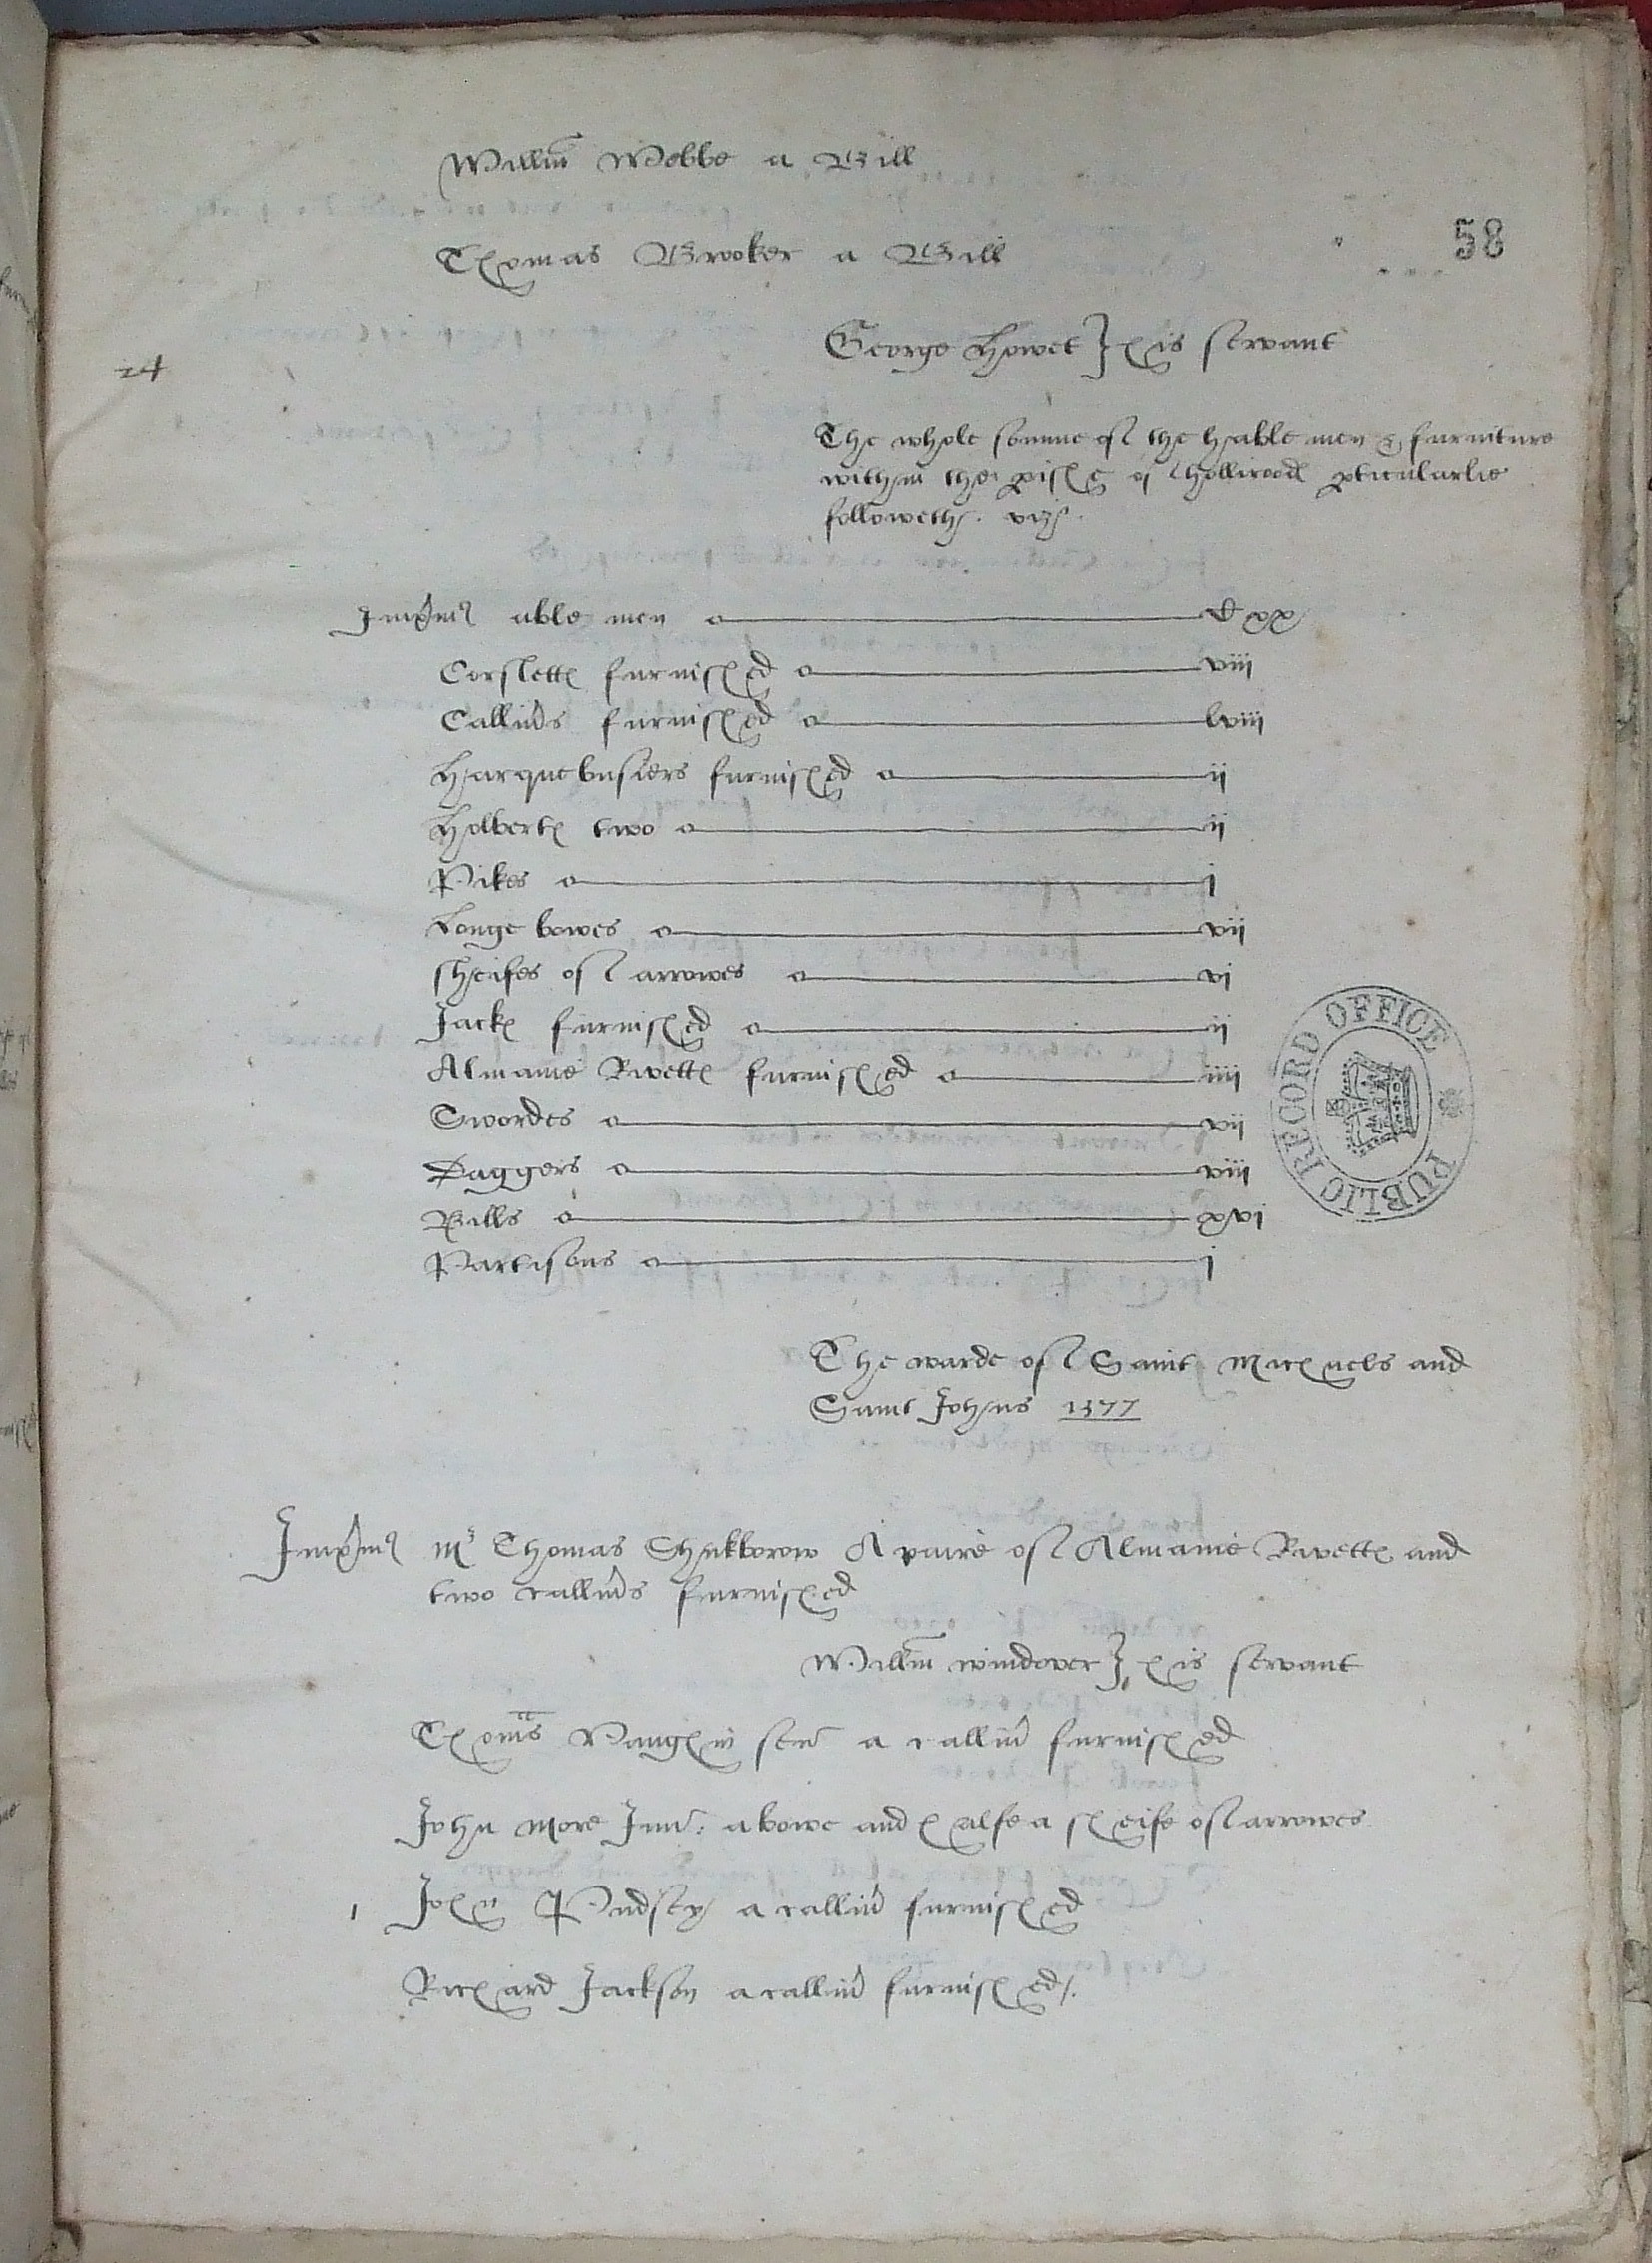 Willm̃ Webbe a Bill
Thomas Brooker a Bill
58
George Howet } his servant
24
The whole somme of the hable men & furniture
within the pish of Hollirood pticularlie
followeth. viz.
Impͥmis able men Cxx
Corslettes furnished viii
Callivͬs furnished lviii
Harquebusiers furnished ii
Holbertes two ii
Pikes i
Longe bowes vii
sheifes of arrowes vi
Jackes furnished ii
Almanie Rivettes furnished iiii
Swordes vii
Daggers viii
Bills xvi
Partisons i
PUBLIC RECORD OFFICE
The warde of Saint Michaels and
Saint Johns 1577
Impͥmis Mͬ Thomas Shukborow A paire of Almanie Rivettes and
two callivͬs furnished
Willm̃ windover } his servant
Thoms̃ senͬ a callivͬ furnished
John More Junͬ: a bowe and halfe a sheife of arrowes
1 John Pudsey a callivͬ furnished
Richard Jackson a callivͬ furnished /.